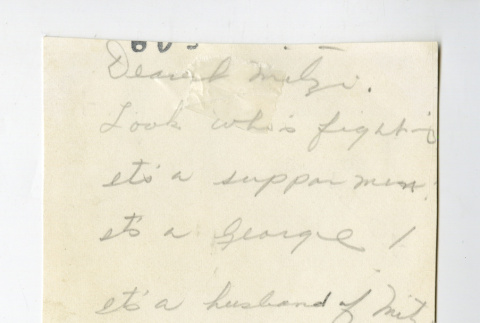 Dearest Mitzi.
Look who's fighting
it's a suppor man!
it's a George!
it's a husband of Mit